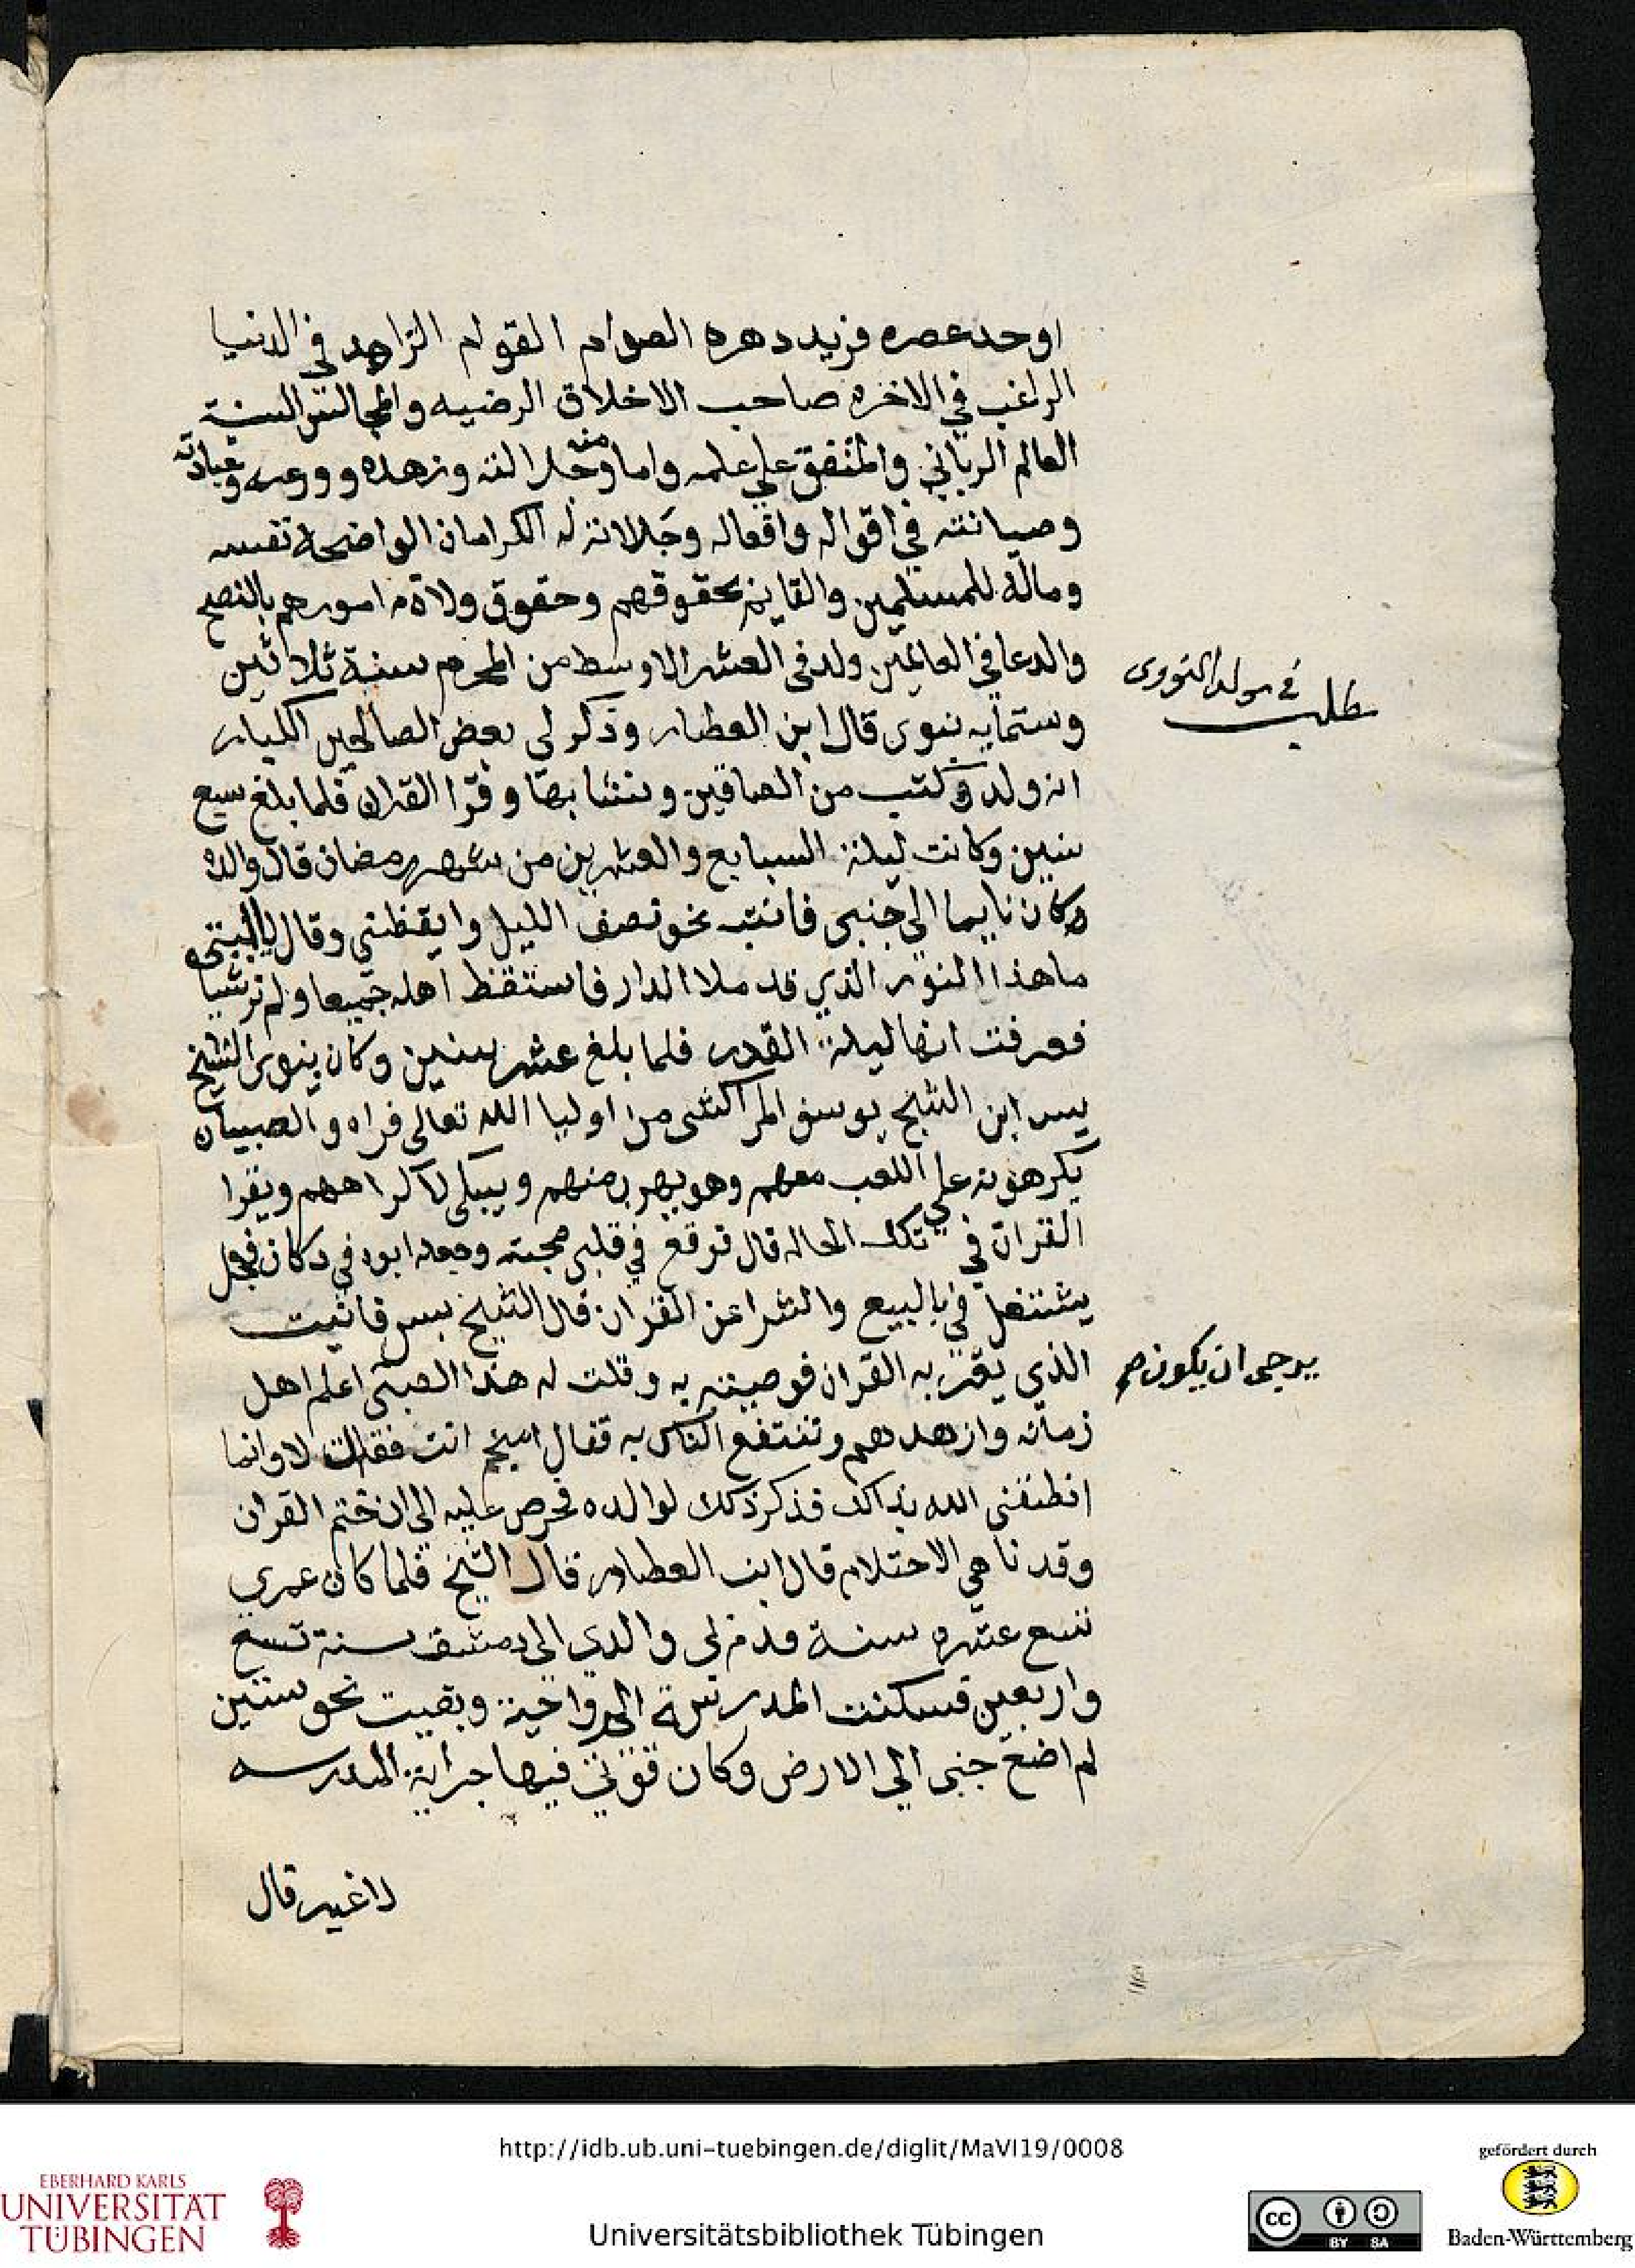 اوحد عصره فريد دهره الصوام القوام الزاهد في الدنيا
الراغب في الاخره صاحب الاخلاق الرضيه والمجالس السنية
العالم الرباني والمتفق علي علمه وامامته وجلالته وزهده وورعه وعبادته
وصيانته في اقواله وافعاله وجلالاته له الكرامات الواضحة نفسه
وماله للمسلمين والقايم بحقوقهم وحقوق ولاة امورهم بالنصح
والدعا في العالمين ولد في العشر الاوسط من المحرم سنة ثلاثين
في مولد النووى
مطلب
وستمايه بنوى قال ابن العطار وذكر لى بعض الصالحين الكبار
انه ولد وكتب من الصادقين ونشا بها وقرا القران فلما بلغ سبع
سنين وكانت ليلة السبابع والعشرين من شهر رمضان قال والده
وكان نايما الي جنبى فانتبه نحو نصف الليل وايقظني وقال يا ابتى
ما هذا النور الذي قد ملا الدار فاستقظ اهله جميعا ولم نر شيا
فعرفت انها ليلة القدر فلما بلغ عشر سنين وكان بنوى الشيخ
يسر ابن الشيخ يوسف المراكشى من اوليا الله تعالى فراه والصبيان
يكرهونه علي اللعب معهم وهو يهرب منهم ويبكى لاكراههم ويقرا
القران في تلك الحاله قال فوقع في قلبى محبته وجعله ابوه في دكان فجعل
يشتغل في بالبيع والشرا عن القران قال الشيخ يسر فاتيت
الذي يقريه القران فوصيته به وقلت له هذا الصبي اعلم اهل
يرجى ان يكون صح
زمانه وازهدهم وتنتفع الناس به فقال امنجم انت فقلت لا وانما
انطقنى الله بذالك فذكر ذلك لوالده فحرص عليه الى ان ختم القران
وقد ناهي الاحتلام قال ابن العطار قال الشيخ فلما كان عمري
تسع عشره سنة قدم لى والدي الى دمشق سنة تسع
واربعين فسكنت المدرسة الرواحية وبقيت نحو سنتين
لم اضع جنبى الي الارض وكان قوتي فيها جراية المدرسه
لا غير قال
http://idb.ub.uni-tuebingen.de/diglit/MaVI19/0008
EBERHARD KARLS
UNIVERSITÄT
TÜBINGEN
Universitätsbibliothek Tübingen
cc BY SA
gefördert durch
Baden-Württemberg